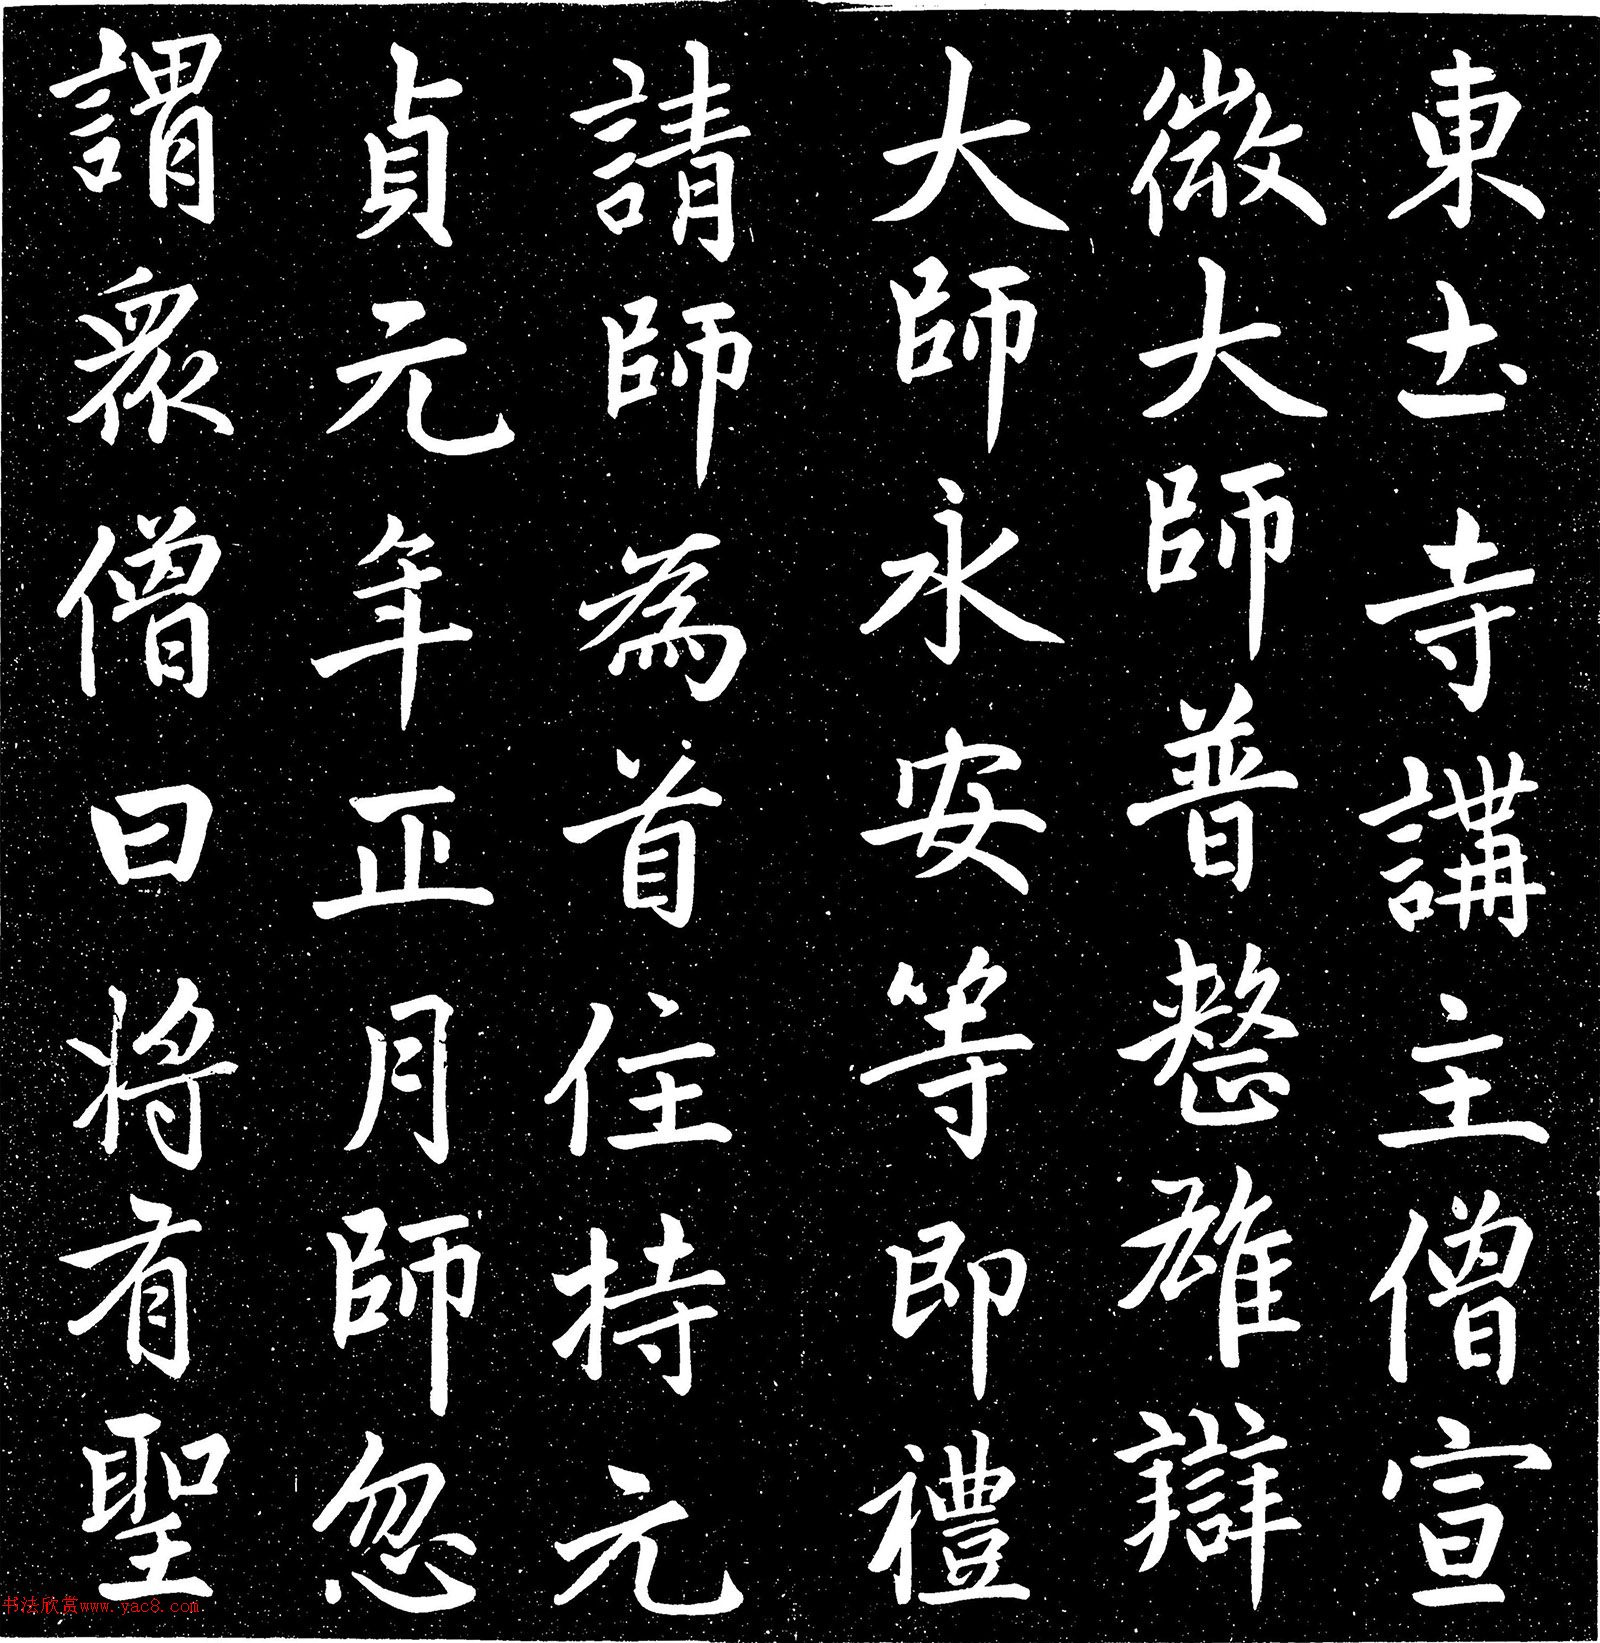 東土寺講主僧宣
微大師普整雄辯
大師永安等即禮
請師為首住持元
貞元年正月師忽
謂眾僧曰將有聖
书法欣赏www.yac8.com